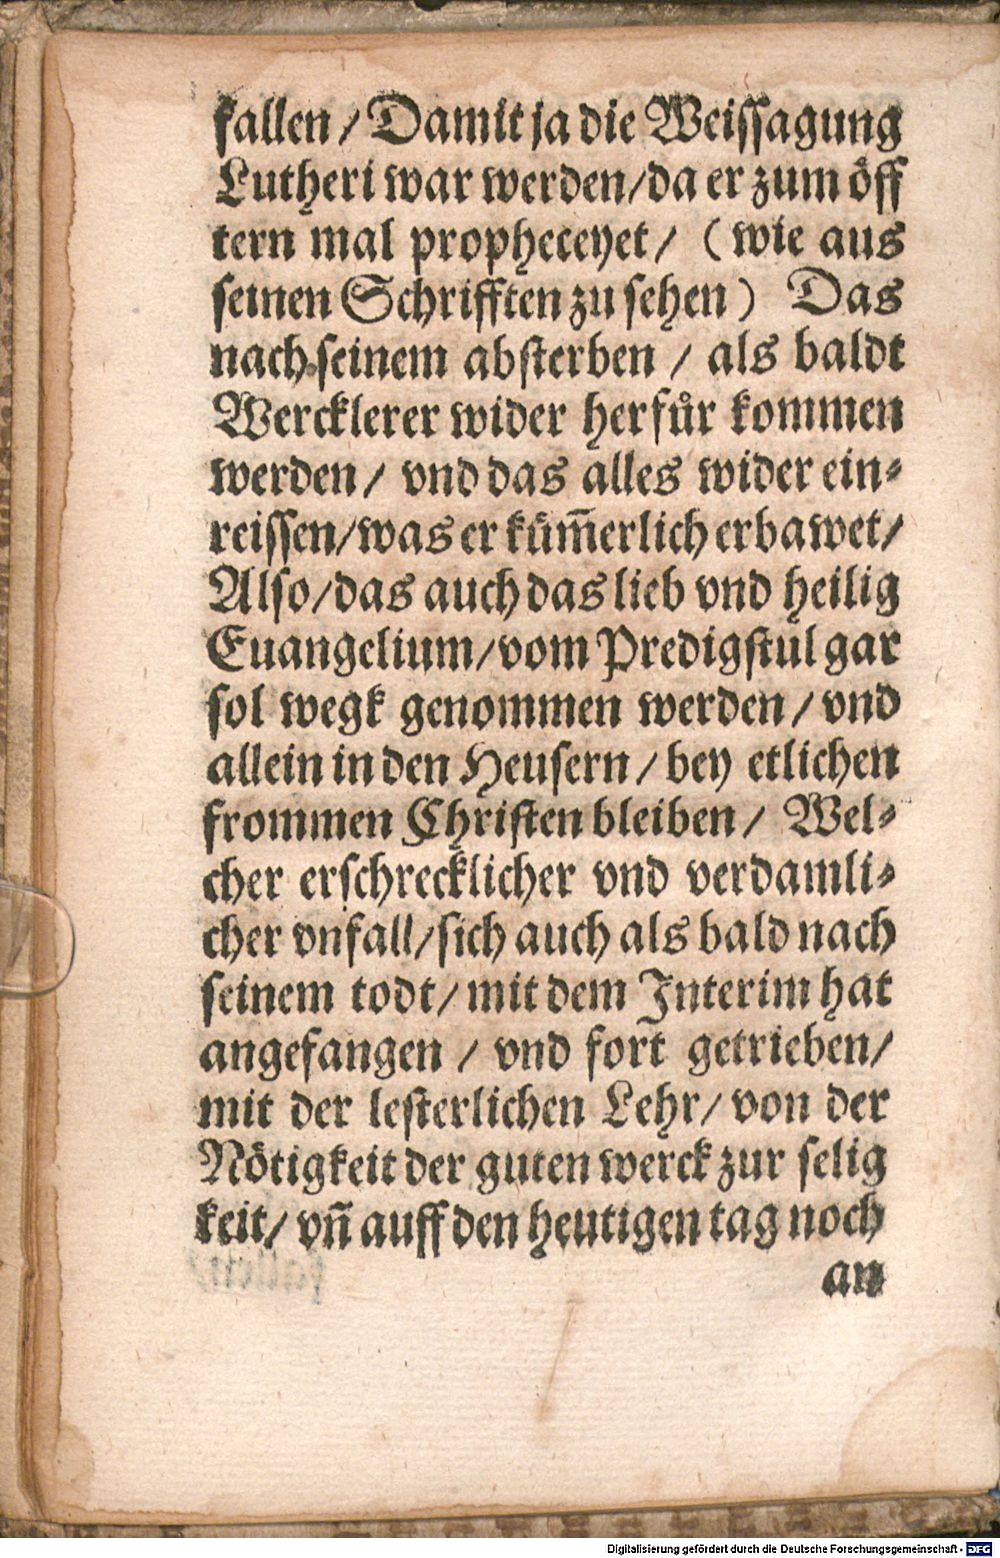 fallen / Damit ja die Weissagung
Lutheri war werden/da er zum öff
tern mal propheceyet/ (wie aus
seinen Schrifften zu sehen) Das
nach seinem absterben / als baldt
Wercklerer wider herfuͤr kommen
werden/ vnd das alles wider ein⸗
reissen/was erküm̄erlich erbawet/
Also/das auch das lieb vnd heilig
Euangelium/vom Predigstul gar
sol wegk genommen werden/vnd
allein in den Heusern/bey etlichen
frommen Christen bleiben/ Wel⸗
cher erschrecklicher vnd verdamli⸗
cher vnfall/sich auch als bald nach
seinem todt/mit dem Interim hat
angefangen / vnd fort getrieben/
mit der lesterlichen Lehr/von der
Nötigkeit der guten werck zur selig
keit/ vn̄ auff den heutigen tag noch
an
Digitalisierung gefördert durch die Deutsche Forschungsgemeinschaft - DFG